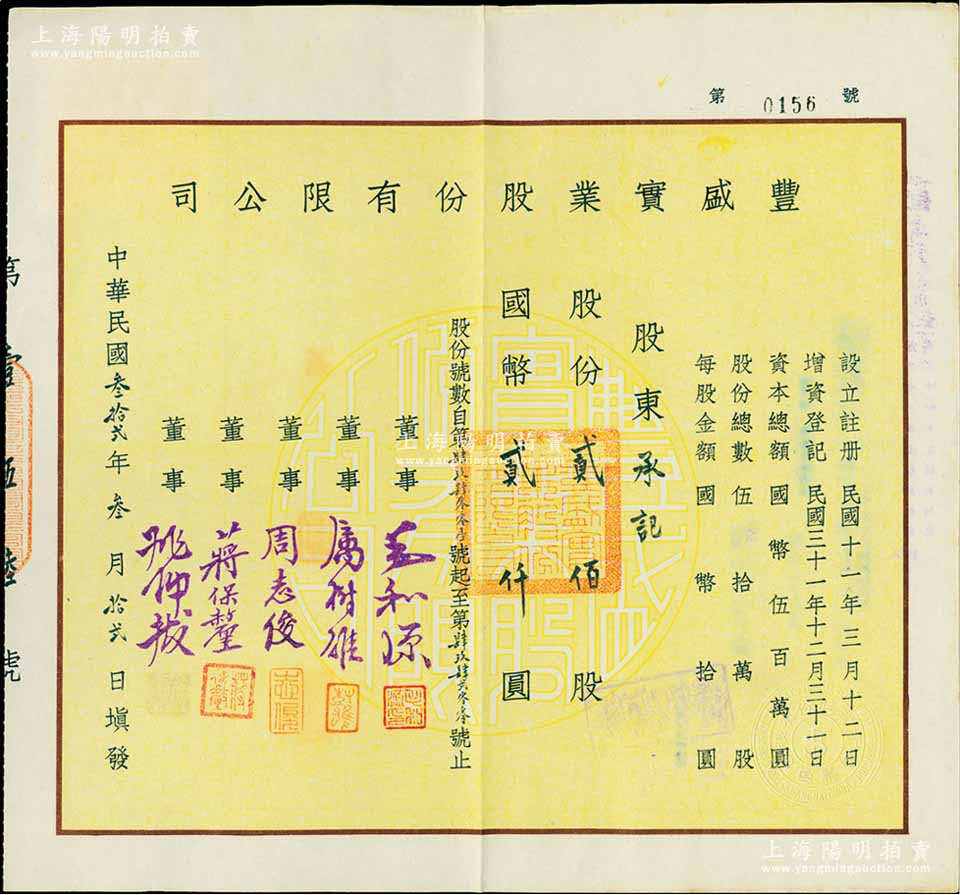 上海陽明拍賣
www.yangmingauction.com
第 0156 號
豐盛實業股份有限公司
設立註册 民國十一年三月十二日
增資登記 民國三十一年十二月三十一日
資本總額 國幣伍百萬圓
股份總數 伍拾萬股
每股金額 國幣拾圓
股東 承記
股份 貳佰 股
國幣 貳仟 圓
股份號數自第 號起至第 號止
董事
董事
董事 周志俊
董事 蔣保釐
董事
中華民國叁拾弍年叁月拾弍日塡發
第 壹 伍 陸 號
上海陽明拍賣
www.yangmingauction.com
上海陽明拍賣
www.yangmingauction.com